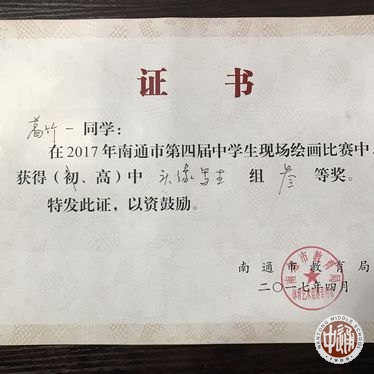 证书
葛竹一同学：
在2017年南通市第四届中学生现场绘画比赛中，
获得（初、高）中 头像写生 组 叁 等奖。
特发此证，以资鼓励。
南通市教育局
二〇一七年四月